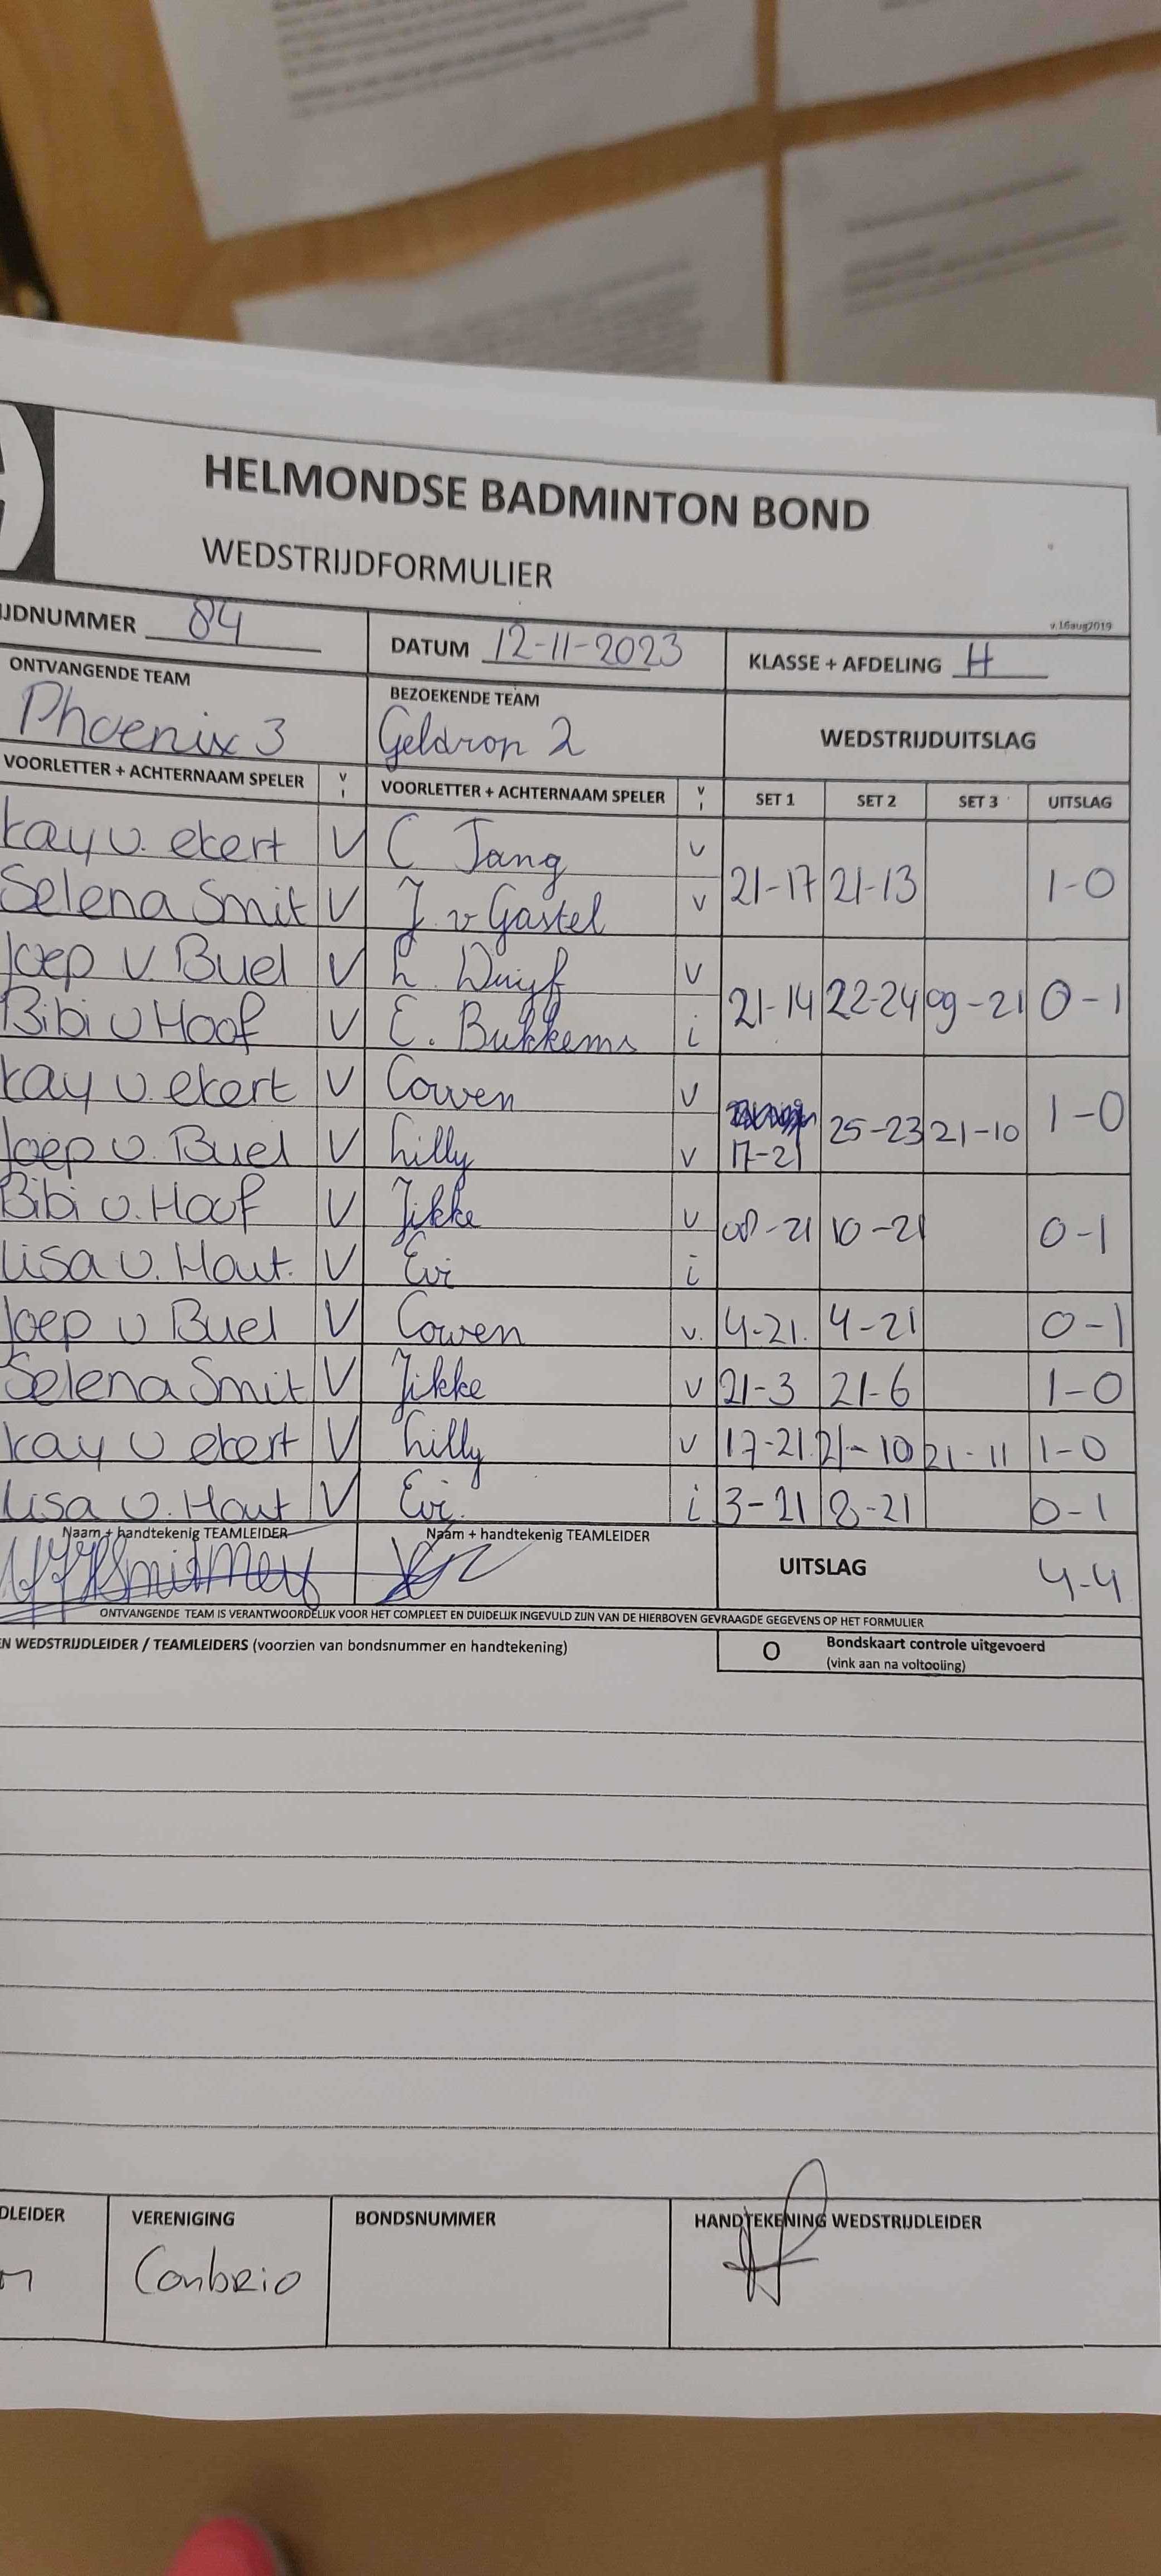 HELMONDSE BADMINTON BOND
WEDSTRIJDFORMULIER
v.16aug2019
IJDNUMMER 84 DATUM 12-11-2023 KLASSE + AFDELING H
ONTVANGENDE TEAM BEZOEKENDE TEAM WEDSTRIJDUITSLAG
Phoenix 3 Geldrop 2
VOORLETTER + ACHTERNAAM SPELER V I VOORLETTER + ACHTERNAAM SPELER V I SET 1 SET 2 SET 3 UITSLAG
kay v. ekert V C Jang v
21-17 21-13 1-0
Selena Smit V J. v Gastel v
Joep v. Buel V L. Duijf v
21-14 22-24 09-21 0-1
Bibi v Hoof V E. Bukkems i
kay v. ekert V Cowen v
25-23 21-10 1-0
Joep v. Buel V Lilly v 17-21
Bibi v. Hoof V Jikke v
08-21 10-21 0-1
Lisa v. Hout. V Evi i
Joep v Buel V Cowen v. 4-21. 4-21 0-1
Selena Smit V Jikke v 21-3 21-6 1-0
kay v ekert V Lilly v 17-21. 21-10 21-11 1-0
Lisa v. Hout V Evi. i 3-21 8-21 0-1
Naam + handtekenig TEAMLEIDER Naam + handtekenig TEAMLEIDER UITSLAG 4-4
ONTVANGENDE TEAM IS VERANTWOORDELIJK VOOR HET COMPLEET EN DUIDELIJK INGEVULD ZIJN VAN DE HIERBOVEN GEVRAAGDE GEGEVENS OP HET FORMULIER
EN WEDSTRIJDLEIDER / TEAMLEIDERS (voorzien van bondsnummer en handtekening) O Bondskaart controle uitgevoerd
(vink aan na voltooling)
DLEIDER VERENIGING BONDSNUMMER HANDTEKENING WEDSTRIJDLEIDER
Conbrio